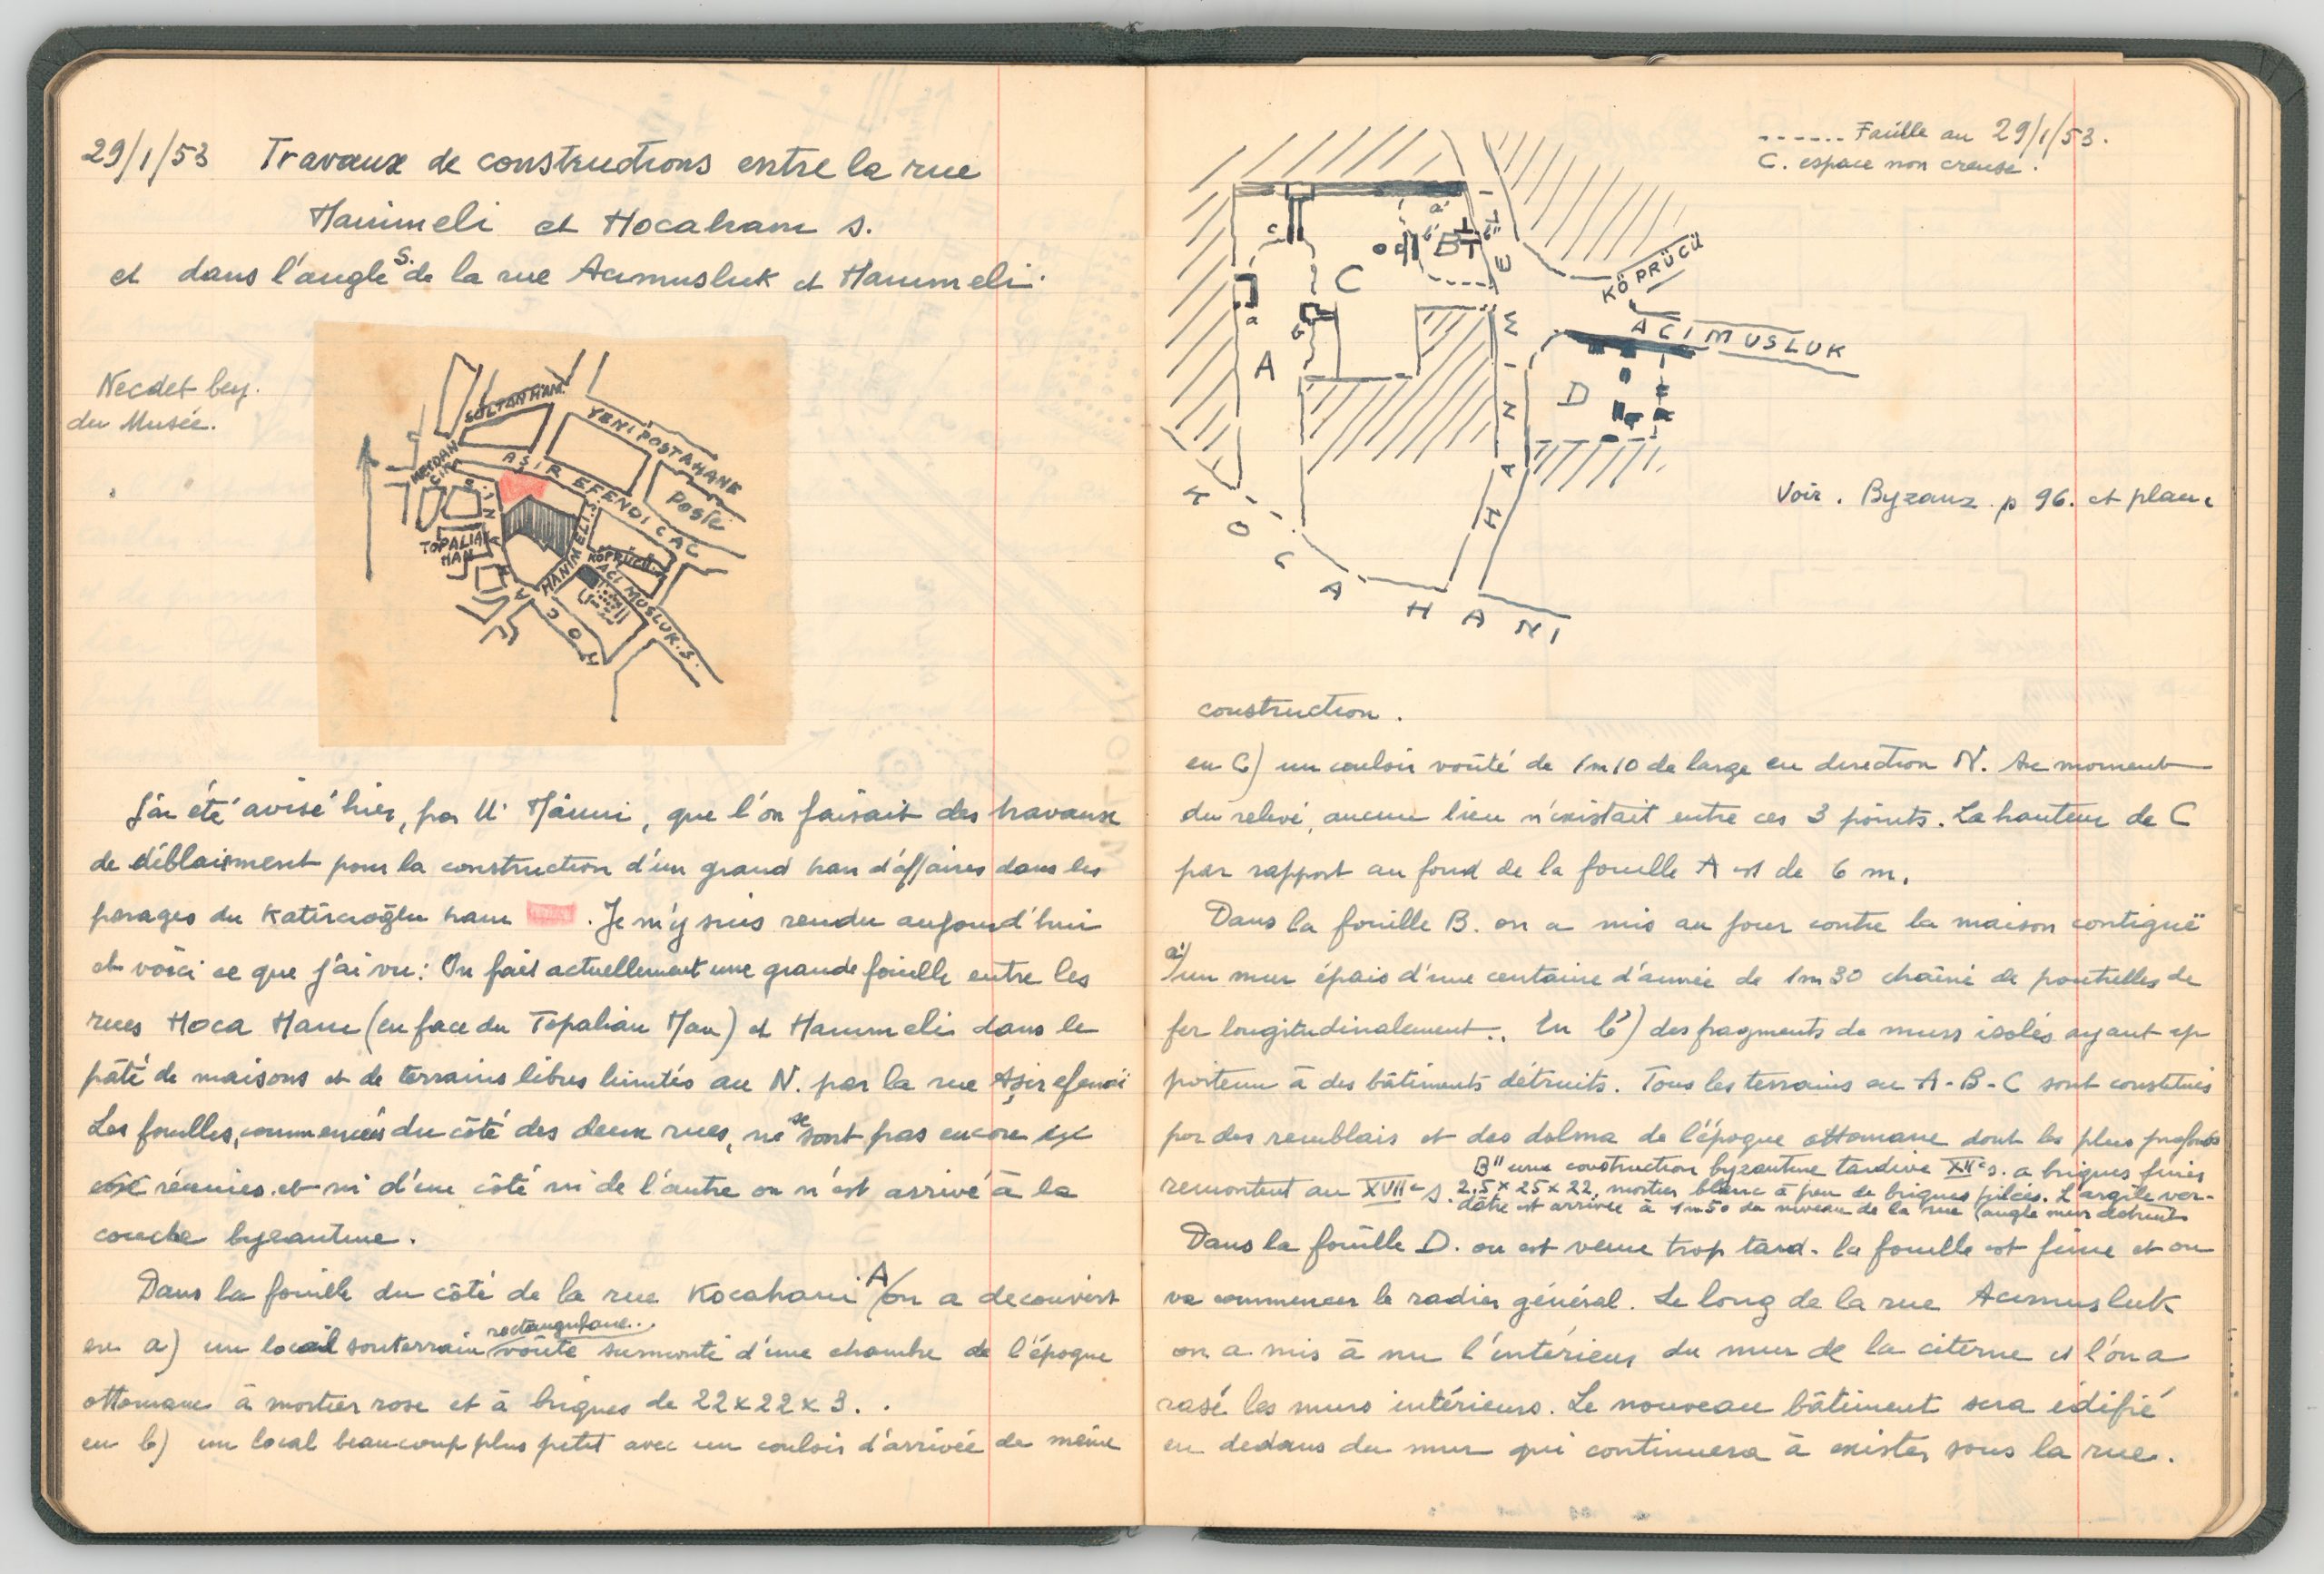 29/1/53 Travaux de constructions entre la rue
Hanimeli et Hocahani s.
et dans l'angle S. de la rue Acimusluk et Hanimeli.
Necdet bey.
du Musée.
SULTAN HAM.
YENİ POSTAHANE
MEYDAN
CIK
AŞİR EFENDİ CAC
Poste
TOPALIAN
HAN
HANIMELI.S.
KÖPRÜCÜ
ACI MUSLUK.S.
HOCA
J'ai été avisé hier, par, que l'on faisait des travaux
de déblaiement pour la construction d'un grand han d'affaires dans les
parages du Katircioğlu hanı. Je m'y suis rendu aujourd'hui
et voici ce que j'ai vu: On fait actuellement une grande fouille entre les
rues Hoca Hanı (en face du Topalian Han) et Hanımeli dans le
pâté de maisons et de terrains libres limités au N. par la rue Aşir efendi
Les fouilles, commencées du côté des deux rues, ne se sont pas encore
réunies et ni d'un côté ni de l'autre on n'est arrivé à la
couche byzantine.
Dans la fouille du côté de la rue Kocahani A/ on a decouvert
en a) un local souterrain rectangulaire voûté surmonté d'une chambre de l'époque
ottomane à mortier rose et à briques de 22x22x3..
en b) un local beaucoup plus petit avec un couloir d'arrivée de même
------ Fouille au 29/1/53.
C. espace non creusé.
a'
b'
b"
B
c
C
a
b
A
D
KÖPRÜCÜ
ACIMUSLUK
HANIMELİ
KOCA HANI
Voir. Byzanz p 96. et plan
construction.
en C) un couloir voûté de 1m10 de large en direction N. Au moment
du relevé, aucun lien n'existait entre ces 3 points. La hauteur de C
par rapport au fond de la fouille A est de 6 m.
Dans la fouille B. on a mis au jour contre la maison contiguë
a') un mur épais d'une centaine d'année de 1m30 chaîné de poutrelles de
fer longitudinalement.. En b') des fragments de murs isolés ayant ap
partenu à des bâtiments détruits. Tous les terrains en A-B-C sont constitués
par des remblais et des dolma de l'époque ottomane dont les plus profonds
remontent au XVIIe s. B" une construction byzantine tardive XIIe s. a briques fines
2,5 x 25 x 22, mortier blanc à peu de briques pilées. L'argile ver-
dâtre est arrivée à 1m50 du niveau de la rue (angle mur detruit
Dans la fouille D. on est venu trop tard. la fouille est finie et on
va commencer le radier général. Le long de la rue Acimusluk
on a mis à nu l'intérieur du mur de la citerne et l'on a
rasé les murs intérieurs. Le nouveau bâtiment sera édifié
en dedans du mur qui continuera à exister sous la rue.